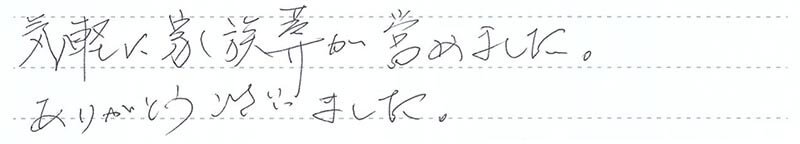 気軽に家族葬が営めました。
ありがとうございました。